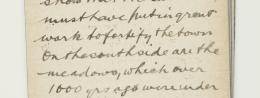 must have put in great
work to fortify the town
On the south side are the
meadows, which over
1000 yrs ago were under